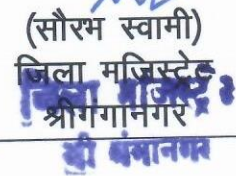 (सौरभ स्वामी)
जिला मजिस्ट्रेट
श्रीगंगानगर
जिला मजिस्ट्रेट
श्री गंगानगर